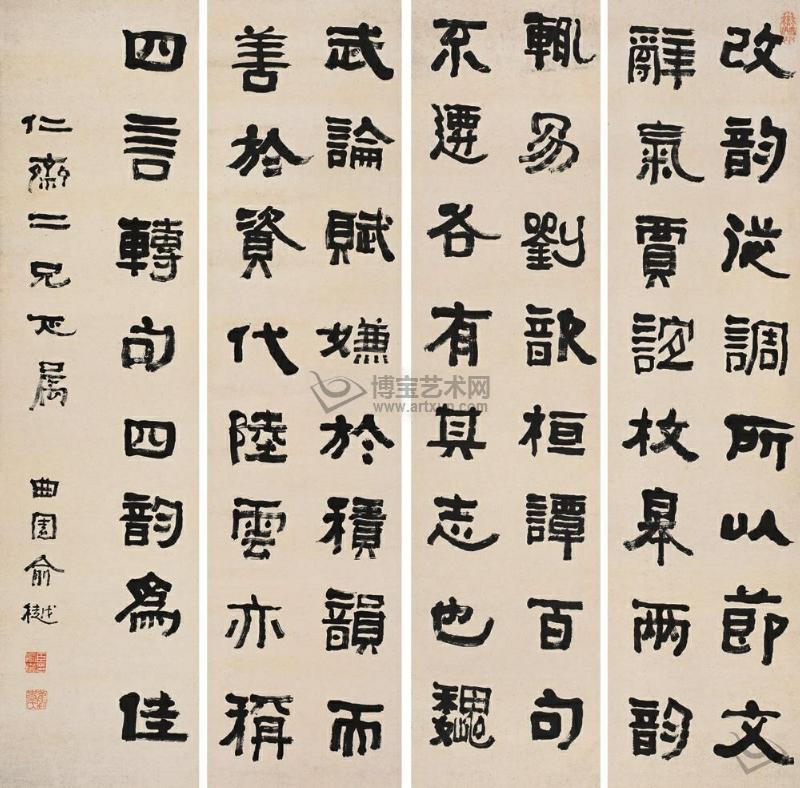 改韵從調所以節文
辭氣賈誼枚皋兩韵
輒易劉歆桓譚百句
不遷各有其志也魏
武論賦嫌於積韻而
善於資代陸雲亦稱
四言轉句四韵爲佳
仁齋二兄正属 曲園俞樾
博宝艺术网
www.artxun.com